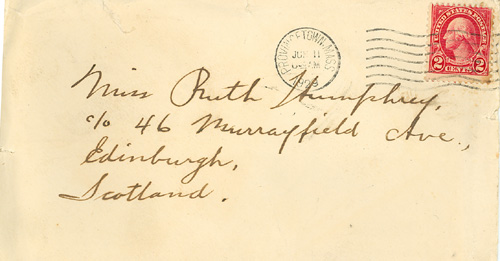 PROVINCETOWN, MASS
JUN 11
1929
UNITED STATES POSTAGE
2 CENTS 2
Miss Ruth Humphrey,
c/o 46 Murrayfield Ave.,
Edinburgh,
Scotland.